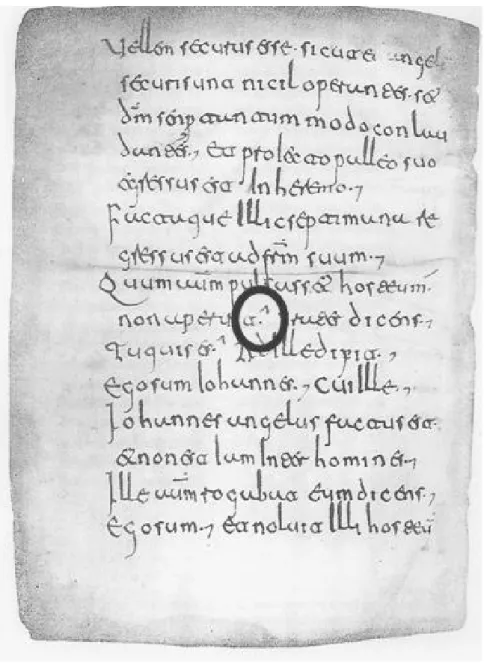 Vellem securus esse sicut et angeli
securi sunt nicil operantes sed
dm semp tantummodo conlau
dantes, et palleo suo
egressus est In heremo,
Factaque Illic septimana re
gressus est ad frm suum,
Quum aum pulsasset hosteum
non aperuit frater dicens,
Tu quis es At ille dixit,
Ego sum Iohannes, Cui Ille,
Iohannes angelus factus est
et non est Iam Inter homines,
Ille aum rogabat eum dicens,
Ego sum, et noluit Illi hosteu